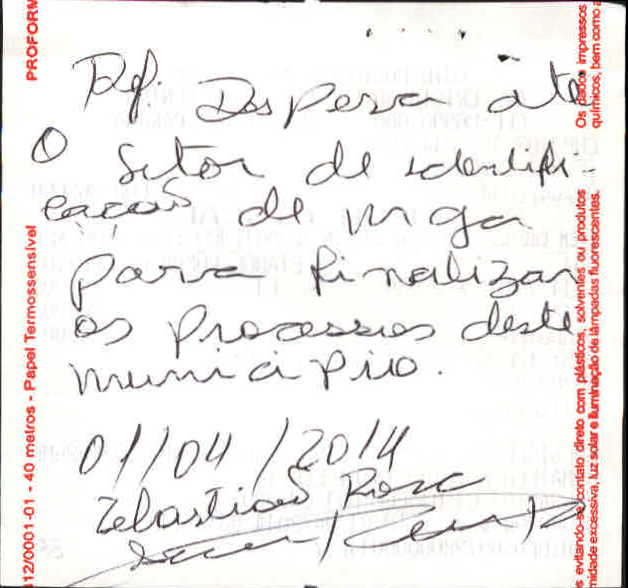 Ref. Despesas até
O Setor de identifi-
cação de
para finalizar
os processos deste
município.
01/04/2014
Sebastião Rosa
PROFORM
412/0001-01 - 40 metros - Papel Termossensível
Os dados impressos
s, evitando-se contato direto com plásticos, solventes ou produtos químicos, bem como a
idade excessiva, luz solar e iluminação de lâmpadas fluorescentes.